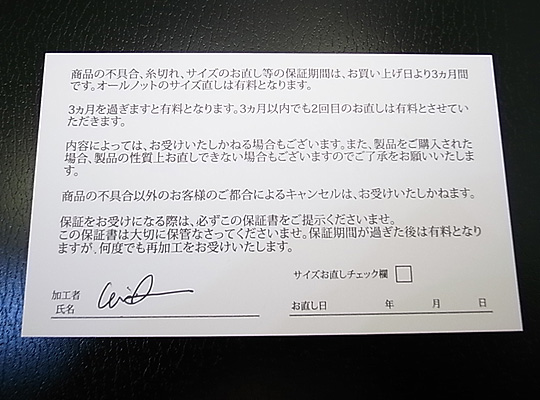 商品の不具合、糸切れ、サイズのお直し等の保証期間は、お買い上げ日より3ヵ月間
です。オールノットのサイズ直しは有料となります。
3ヵ月を過ぎますと有料となります。3ヵ月以内でも2回目のお直しは有料とさせてい
ただきます。
内容によっては、お受けいたしかねる場合もございます。また、製品をご購入された
場合、製品の性質上お直しできない場合もございますのでご了承をお願いいたしま
す。
商品の不具合以外のお客様のご都合によるキャンセルは、お受けいたしかねます。
保証をお受けになる際は、必ずこの保証書をご提示くださいませ。
この保証書は大切に保管なさってくださいませ。保証期間が過ぎた後は有料となり
ますが、何度でも再加工をお受けいたします。
サイズお直しチェック欄
加工者
氏名
お直し日 年 月 日